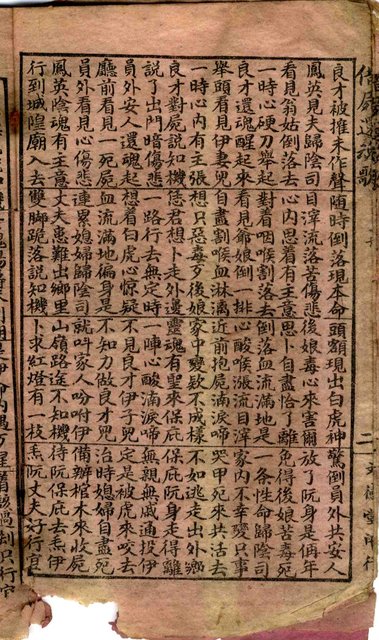 良才被推未作聲 隨時倒落現本命 頭額現出白虎神 驚倒員外共安人
鳳英見夫歸陰司 目滓流落苦傷悲 後娘毒心來害爾 放了阮身是俩年
看見翁姑倒落去 心內思着有主意 思卜自盡恰了離 免得後娘苦毒死
一時心硬刀舉起 對着咽喉割落去 倒落血流滿地是 一條性命歸陰司
良才還魂醒起來 看見爺娘倒一排 心酸喉漲流目滓 家內不幸變只事
舉頭看見伊妻兒 自盡割喉血淋漓 近前抱屍滴淚啼 哭甲死來共活去
一時心內有主張 想只惡毒歹後娘 家中變欵不成樣 不如逃走出外鄉
良才對屍說知機 恁君想卜走外邊 靈魂有聖來保庇 保庇阮身走得離
說了出門暗傷悲 一路行去無定時 一陣心酸滿淚啼 無親無戚通投伊
員外安人還魂起 想着白虎心驚疑 不見良才伊子兒 定是被虎來咬去
廳前看見一死屍 血流滿地偏身是 不知力做良才死 治時媳婦自盡死
員外看見心傷悲 連累媳婦歸陰司 就叫家人吩咐伊 備辦棺木來收屍
鳳英陰魂有主意 丈夫患難出鄉里 山嶺路途不知機 待阮保庇去𤆬伊
行到城隍廟入去 雙脚跪落說知機 卜求紅燈有一枝 𤆬阮丈夫好行宜